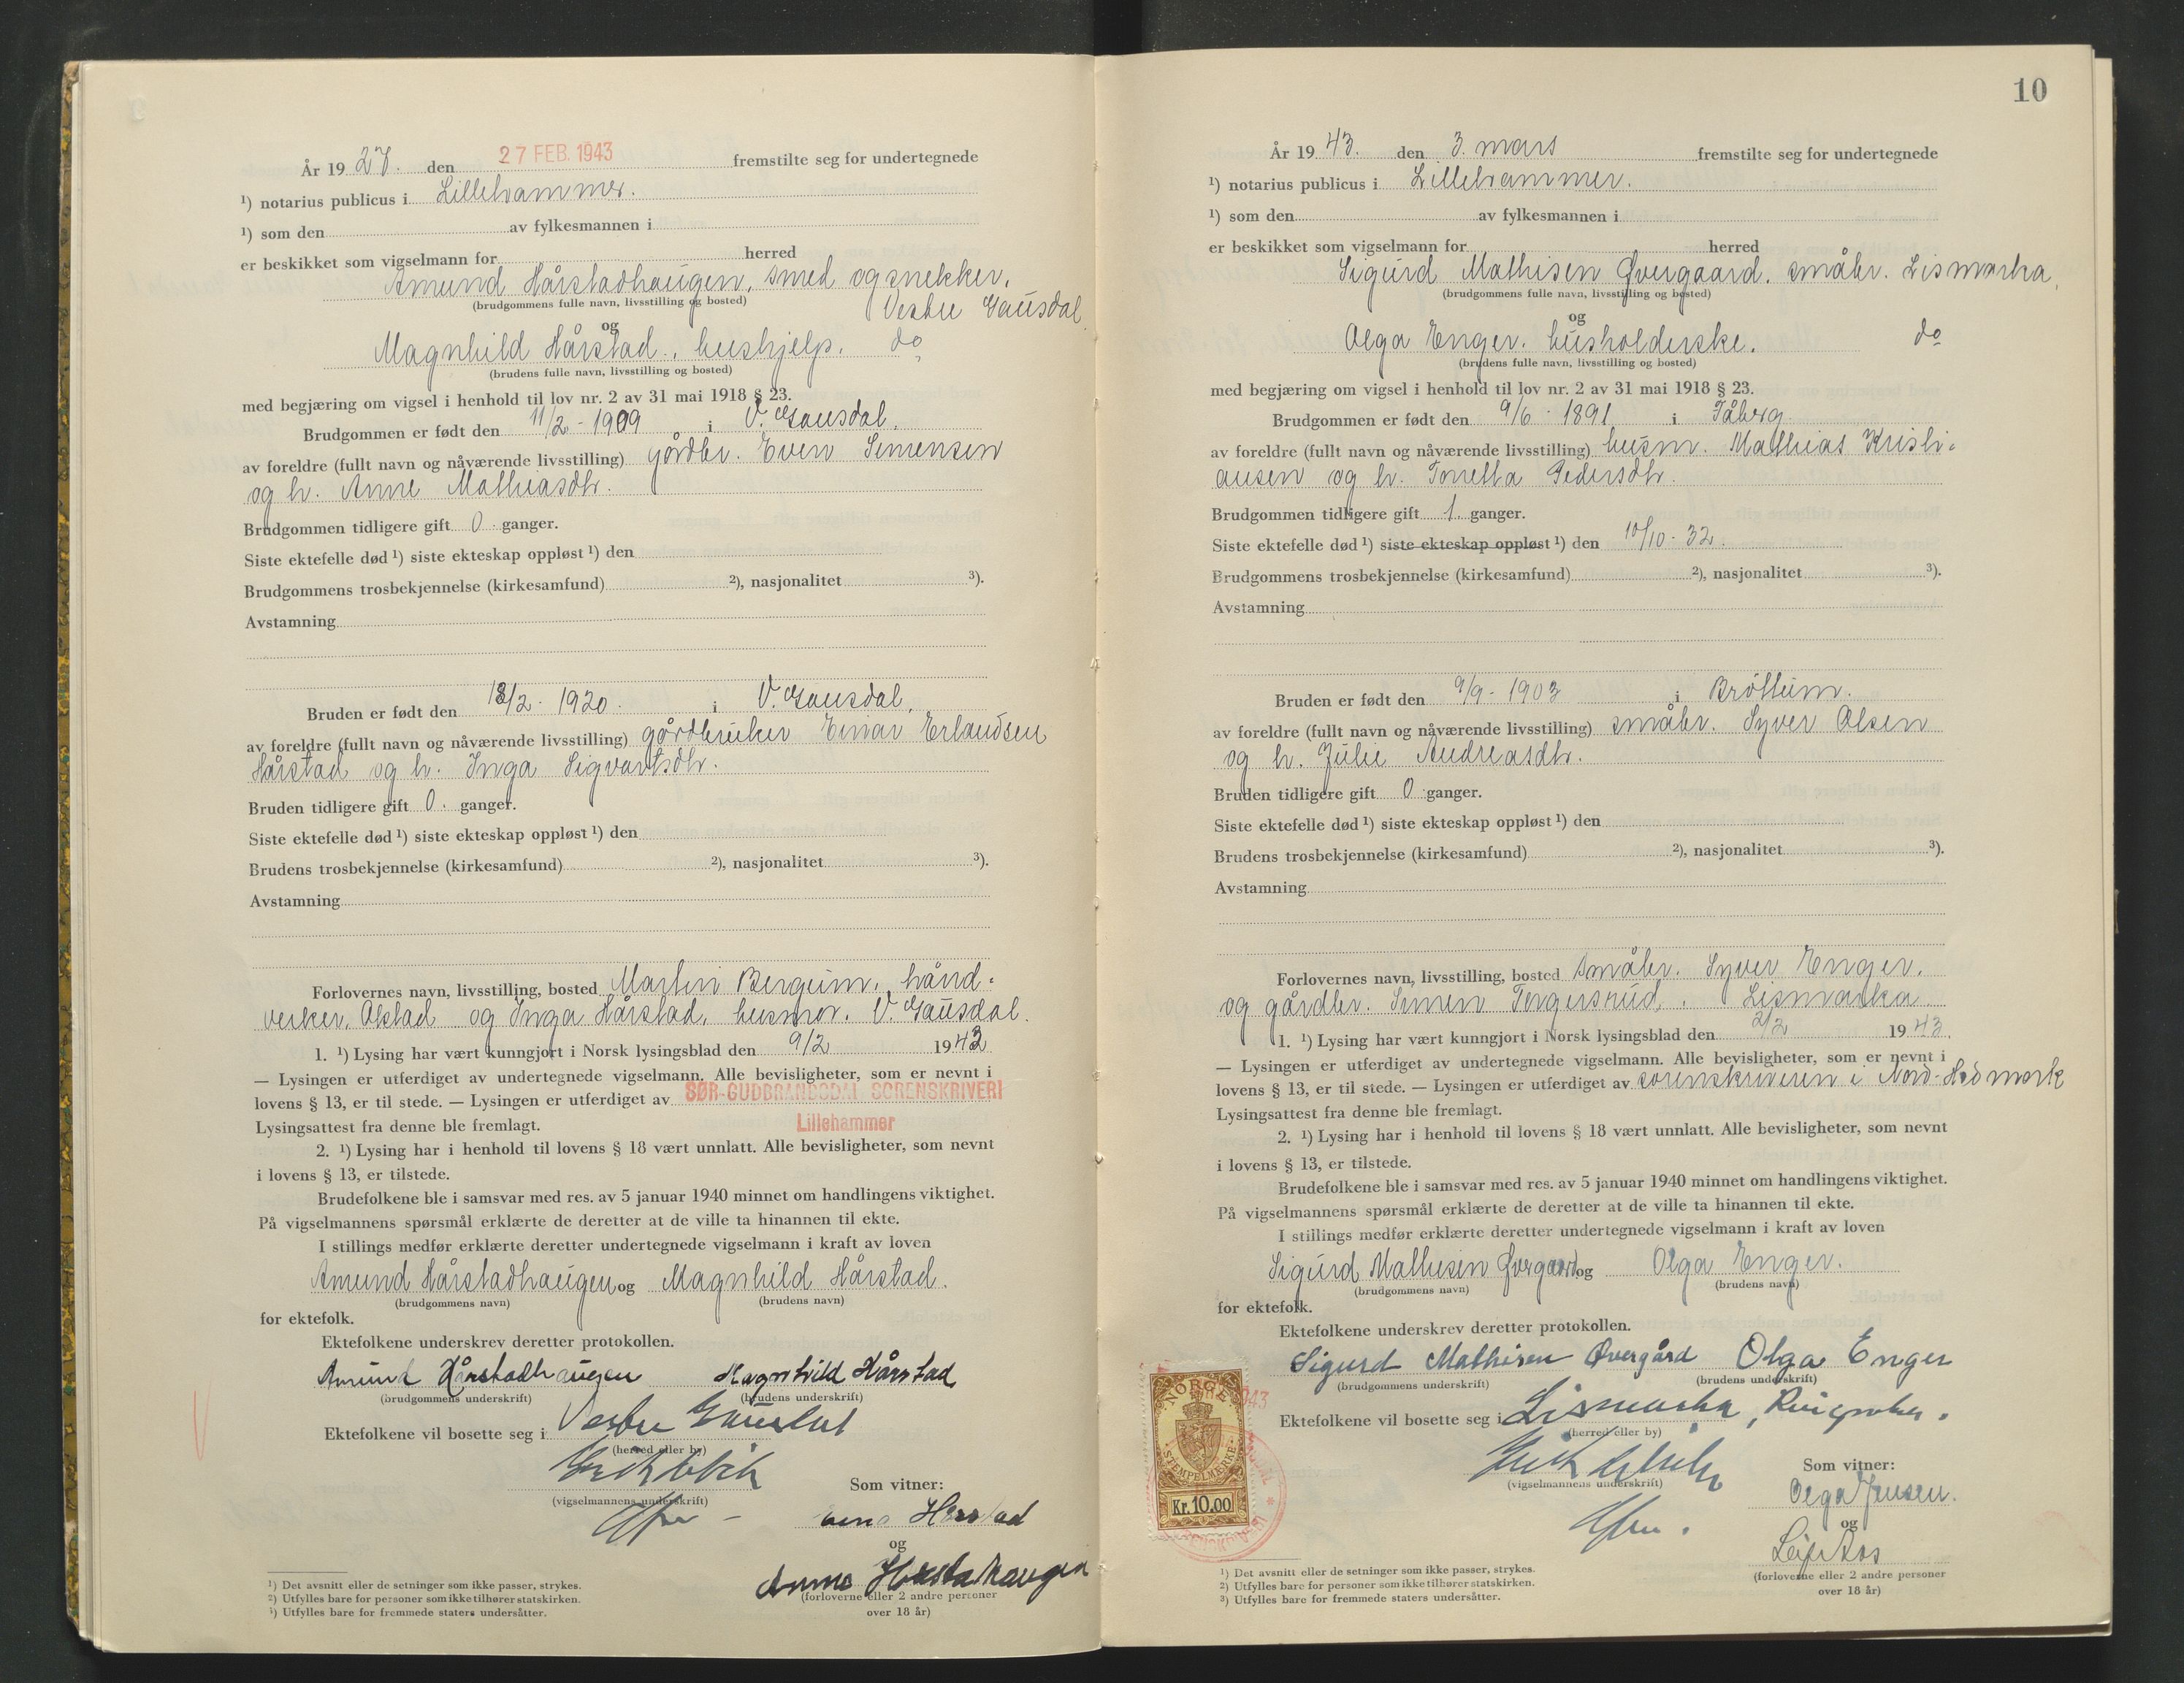 År 19 27. den 27 FEB. 1943 fremstilte seg for undertegnede
¹) notarius publicus i Lillehammer.
¹) som den av fylkesmannen i
er beskikket som vigselmann for herred
Amund Hårstadhaugen, smed og snekker,
(brudgommens fulle navn, livsstilling og bosted) Vestre Gausdal
og
Magnhild Hårstad, hushjelp. do
(brudens fulle navn, livsstilling og bosted)
med begjæring om vigsel i henhold til lov nr. 2 av 31 mai 1918 § 23.
Brudgommen er født den 11/2 - 1909 i V. Gausdal.
av foreldre (fullt navn og nåværende livsstilling) gårdbr. Even Simensen
og h. Anne Mathiasdtr.
Brudgommen tidligere gift 0 ganger.
Siste ektefelle død ¹) siste ekteskap oppløst ¹) den
Brudgommens trosbekjennelse (kirkesamfund) ²), nasjonalitet ³).
Avstamning
Bruden er født den /2 - 1920. i V. Gausdal.
av foreldre (fullt navn og nåværende livsstilling) gårdbruker Einar Erlandsen
Hårstad og h. Inga Sigvartsdtr.
Bruden tidligere gift 0. ganger.
Siste ektefelle død ¹) siste ekteskap oppløst ¹) den
Brudens trosbekjennelse (kirkesamfund) ²), nasjonalitet ³).
Avstamning
Forlovernes navn, livsstilling, bosted Martin Bergum, hånd-
verker, og Inga Hårstad, husmor. V. Gausdal.
1. ¹) Lysing har vært kunngjort i Norsk lysingsblad den 9/2 1943
— Lysingen er utferdiget av undertegnede vigselmann. Alle bevisligheter, som er nevnt i
lovens § 13, er til stede. — Lysingen er utferdiget av SØR-GUDBRANDSDAL SORENSKRIVERI
Lysingsattest fra denne ble fremlagt. Lillehammer
2. ¹) Lysing har i henhold til lovens § 18 vært unnlatt. Alle bevisligheter, som nevnt
i lovens § 13, er tilstede.
Brudefolkene ble i samsvar med res. av 5 januar 1940 minnet om handlingens viktighet.
På vigselmannens spørsmål erklærte de deretter at de ville ta hinannen til ekte.
I stillings medfør erklærte deretter undertegnede vigselmann i kraft av loven
Amund Hårstadhaugen og Magnhild Hårstad.
(brudgommens navn) (brudens navn)
for ektefolk.
Ektefolkene underskrev deretter protokollen.
Amund Hårstadhaugen Magnhild Hårstad
(brudgommens underskrift) (brudens underskrift)
Ektefolkene vil bosette seg i Vestre Gausdal
(herred eller by)
Som vitner:
(vigselmannens underskrift)
og
Anne Hårstadhaugen
(forloverne eller 2 andre personer
over 18 år)
¹) Det avsnitt eller de setninger som ikke passer, strykes.
²) Utfylles bare for personer som ikke tilhører statskirken.
³) Utfylles bare for fremmede staters undersåtter.
10
År 19 43. den 3. mars fremstilte seg for undertegnede
¹) notarius publicus i Lillehammer.
¹) som den av fylkesmannen i
er beskikket som vigselmann for herred
Sigurd Mathisen Øvergaard, småbr. Lismarka,
(brudgommens fulle navn, livsstilling og bosted)
og
Olga Enger. husholderske. do
(brudens fulle navn, livsstilling og bosted)
med begjæring om vigsel i henhold til lov nr. 2 av 31 mai 1918 § 23.
Brudgommen er født den 9/6 - 1891 i Fåberg.
av foreldre (fullt navn og nåværende livsstilling) husm. Mathias Kristi-
ansen og h. Tonetta Pedersdtr.
Brudgommen tidligere gift 1. ganger.
Siste ektefelle død ¹) siste ekteskap oppløst ¹) den 10/10 - 32.
Brudgommens trosbekjennelse (kirkesamfund) ²), nasjonalitet ³).
Avstamning
Bruden er født den 9/9 - 1903 i Brøttum.
av foreldre (fullt navn og nåværende livsstilling) småbr. Syver Olsen
og h. Julie Andreasdtr.
Bruden tidligere gift 0 ganger.
Siste ektefelle død ¹) siste ekteskap oppløst ¹) den
Brudens trosbekjennelse (kirkesamfund) ²), nasjonalitet ³).
Avstamning
Forlovernes navn, livsstilling, bosted småbr. Syver Enger,
og gårdbr. Simen Torgersrud, Lismarka
1. ¹) Lysing har vært kunngjort i Norsk lysingsblad den 2/2 1943.
— Lysingen er utferdiget av undertegnede vigselmann. Alle bevisligheter, som er nevnt i
lovens § 13, er til stede. — Lysingen er utferdiget av sorenskriveren i Nord-Hedmark
Lysingsattest fra denne ble fremlagt.
2. ¹) Lysing har i henhold til lovens § 18 vært unnlatt. Alle bevisligheter, som nevnt
i lovens § 13, er tilstede.
Brudefolkene ble i samsvar med res. av 5 januar 1940 minnet om handlingens viktighet.
På vigselmannens spørsmål erklærte de deretter at de ville ta hinannen til ekte.
I stillings medfør erklærte deretter undertegnede vigselmann i kraft av loven
Sigurd Mathisen Øvergaard og Olga Enger.
(brudgommens navn) (brudens navn)
for ektefolk.
Ektefolkene underskrev deretter protokollen.
Sigurd Mathisen Øvergård Olga Enger
(brudgommens underskrift) (brudens underskrift)
Ektefolkene vil bosette seg i Lismarka, Ringsaker.
(herred eller by)
NORGE
STEMPELMERKE
Kr. 10.00
Som vitner:
(vigselmannens underskrift)
Olga Jensen.
og
Leif Aas
(forloverne eller 2 andre personer
over 18 år)
¹) Det avsnitt eller de setninger som ikke passer, strykes.
²) Utfylles bare for personer som ikke tilhører statskirken.
³) Utfylles bare for fremmede staters undersåtter.